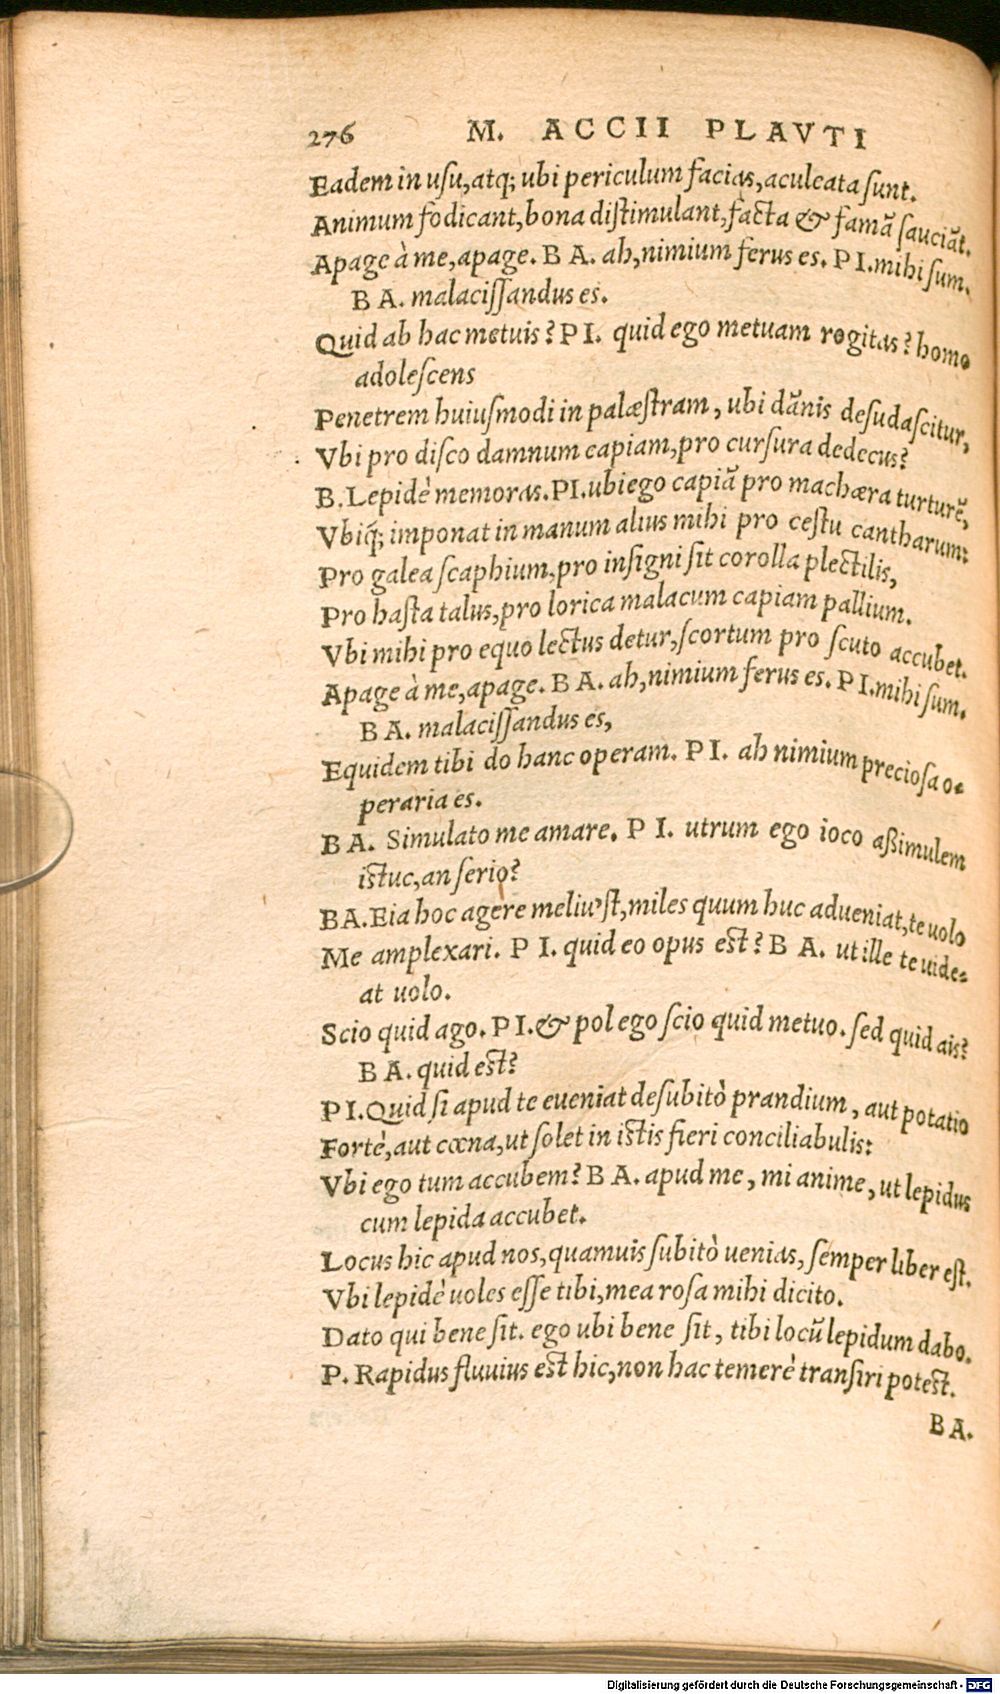 276 M. ACCII PLAVTI
Eadem in usu, atq; ubi periculum facias, aculeata sunt.
Animum fodicant, bona distimulant, facta & famā sauciāt.
Apage à me, apage. B A. ah, nimium ferus es. P I. mihi sum.
B A. malacissandus es.
Quid ab hac metuis? P I. quid ego metuam rogitas? homo
adolescens
Penetrem huiusmodi in palæstram, ubi dānis desudascitur,
Vbi pro disco damnum capiam, pro cursura dedecus?
B. Lepidè memoras. PI. ubi ego capiā pro machæra turturē,
Vbiq; imponat in manum alius mihi pro cestu cantharum:
Pro galea scaphium, pro insigni sit corolla plectilis,
Pro hasta talus, pro lorica malacum capiam pallium.
Vbi mihi pro equo lectus detur, scortum pro scuto accubet.
Apage à me, apage. B A. ah, nimium ferus es. P I. mihi sum.
B A. malacissandus es,
Equidem tibi do hanc operam. P I. ah nimium preciosa o=
peraria es.
B A. Simulato me amare. P I. utrum ego ioco aßimulem
istuc, an serio?
BA. Eia hoc agere meliu'st, miles quum huc adueniat, te uolo
Me amplexari. P I. quid eo opus est? B A. ut ille te uide=
at uolo.
Scio quid ago. P I. & pol ego scio quid metuo. sed quid ais?
B A. quid est?
P I. Quid si apud te eueniat desubitò prandium, aut potatio
Fortè, aut cœna, ut solet in istis fieri conciliabulis:
Vbi ego tum accubem? B A. apud me, mi anime, ut lepidus
cum lepida accubet.
Locus hic apud nos, quamuis subitò uenias, semper liber est.
Vbi lepidè uoles esse tibi, mea rosa mihi dicito.
Dato qui bene sit. ego ubi bene sit, tibi locū lepidum dabo.
P. Rapidus fluuius est hic, non hac temerè transiri potest.
B A.
Digitalisierung gefördert durch die Deutsche Forschungsgemeinschaft - DFG